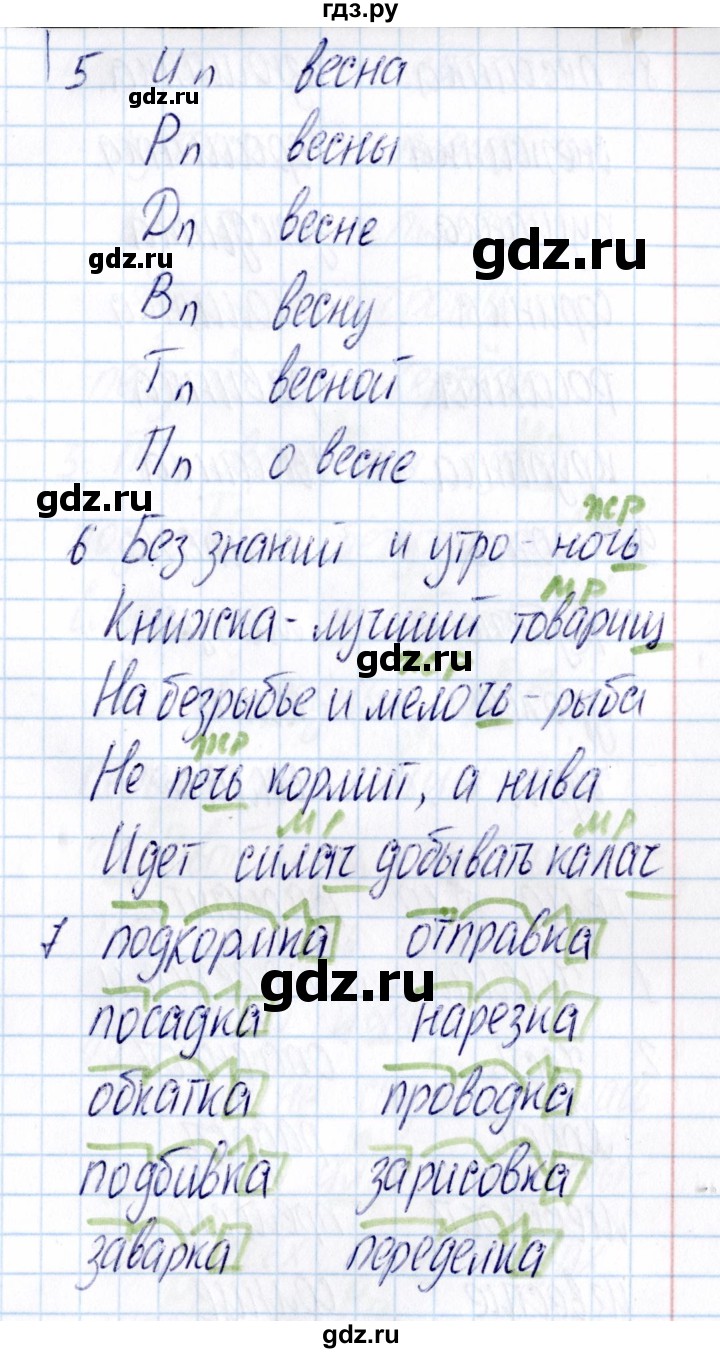 гдз.ру
5 Ип весна
gdz.ru
Рп весны
Дп весне
gdz.ru
gdz.ru
Вп весну
Тп весной
Пп о весне
gdz.ru
жр
6 Без знаний и утро - ночь
мр
Книжка - лучший товарищ
gdz.ru
На безрыбье и мелочь - рыба
жр
Не печь кормит, а нива
мр мр
Идет силач добывать калач
7 подкормка отправка
gdz.ru
посадка нарезка
обкатка проводка
подбивка зарисовка
заварка переделка
gdz.ru